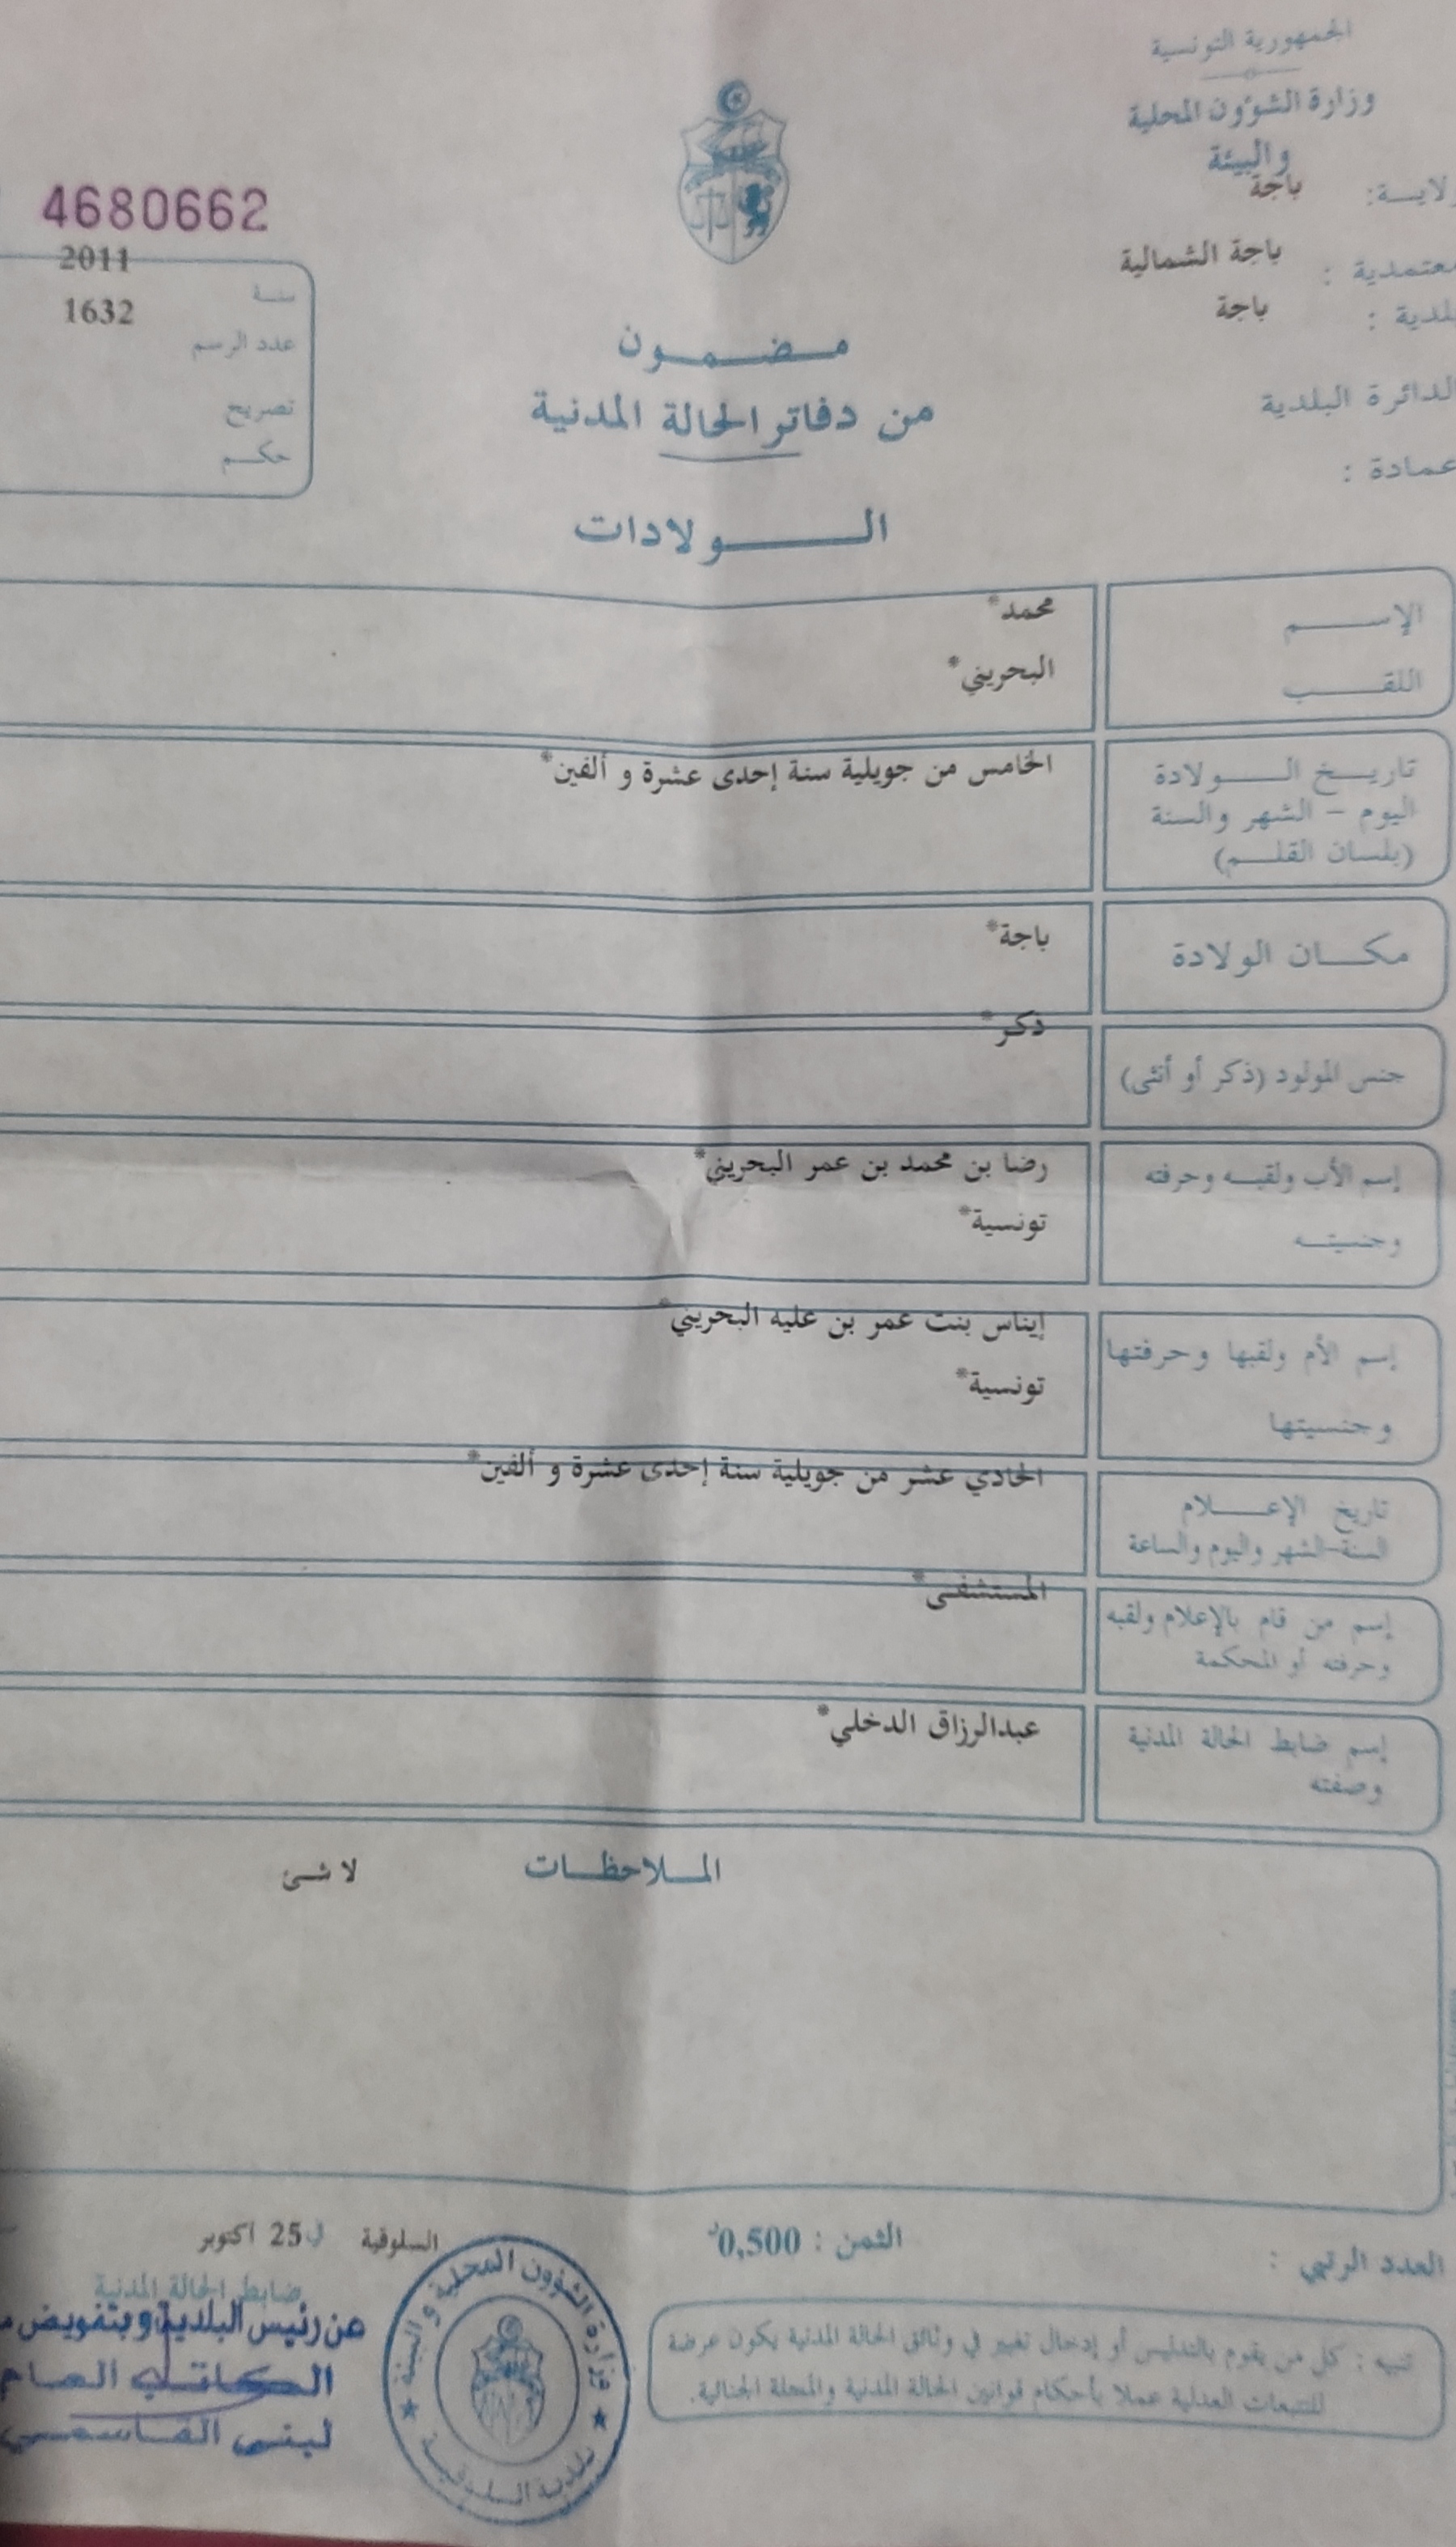 الجمهورية التونسية
وزارة الشؤون المحلية
والبيئة
لايـــة: باجة
معتمدية : باجة الشمالية
لدية : باجة
لدائرة البلدية
عمادة :
4680662
سنـة 2011
عدد الرسم 1632
تصريح
حكـــم
مـضـمـــون
من دفاتر الحالة المدنية
الـــولادات
الإســـم محمد*
اللقـــب البحريني*
تاريــخ الـــولادة الخامس من جويلية سنة إحدى عشرة و ألفين*
اليوم – الشهر والسنة
(بلسان القلــم)
مكـــان الولادة باجة*
ذكر*
جنس المولود (ذكر أو أنثى)
إسم الأب ولقبــه وحرفته رضا بن محمد بن عمر البحريني*
وجنسيتــه تونسية*
إسم الأم ولقبها وحرفتها إيناس بنت عمر بن عليه البحريني*
وجنسيتها تونسية*
تاريخ الإعـــلام الحادي عشر من جويلية سنة إحدى عشرة و ألفين*
السنة-الشهر واليوم والساعة
إسم من قام بالإعلام ولقبه المستشفى*
وحرفته أو المحكمة
إسم ضابط الحالة المدنية عبدالرزاق الدخلي*
وصفته
المــلاحظــات لا شئ
العدد الرتبي :
الثمن : 0,500د
السلوقية في 25 اكتوبر
ضابط الحالة المدنية
عن رئيس البلدية وبتفويض
الكاتب العام
لبنى القاسمي
وزارة الشؤون المحلية والبيئة
بلدية السلوقية
تنبيه : كل من يقوم بالتدليس أو إدخال تغيير في وثائق الحالة المدنية يكون عرضة
للتتبعات العدلية عملا بأحكام قوانين الحالة المدنية والمجلة الجنائية.